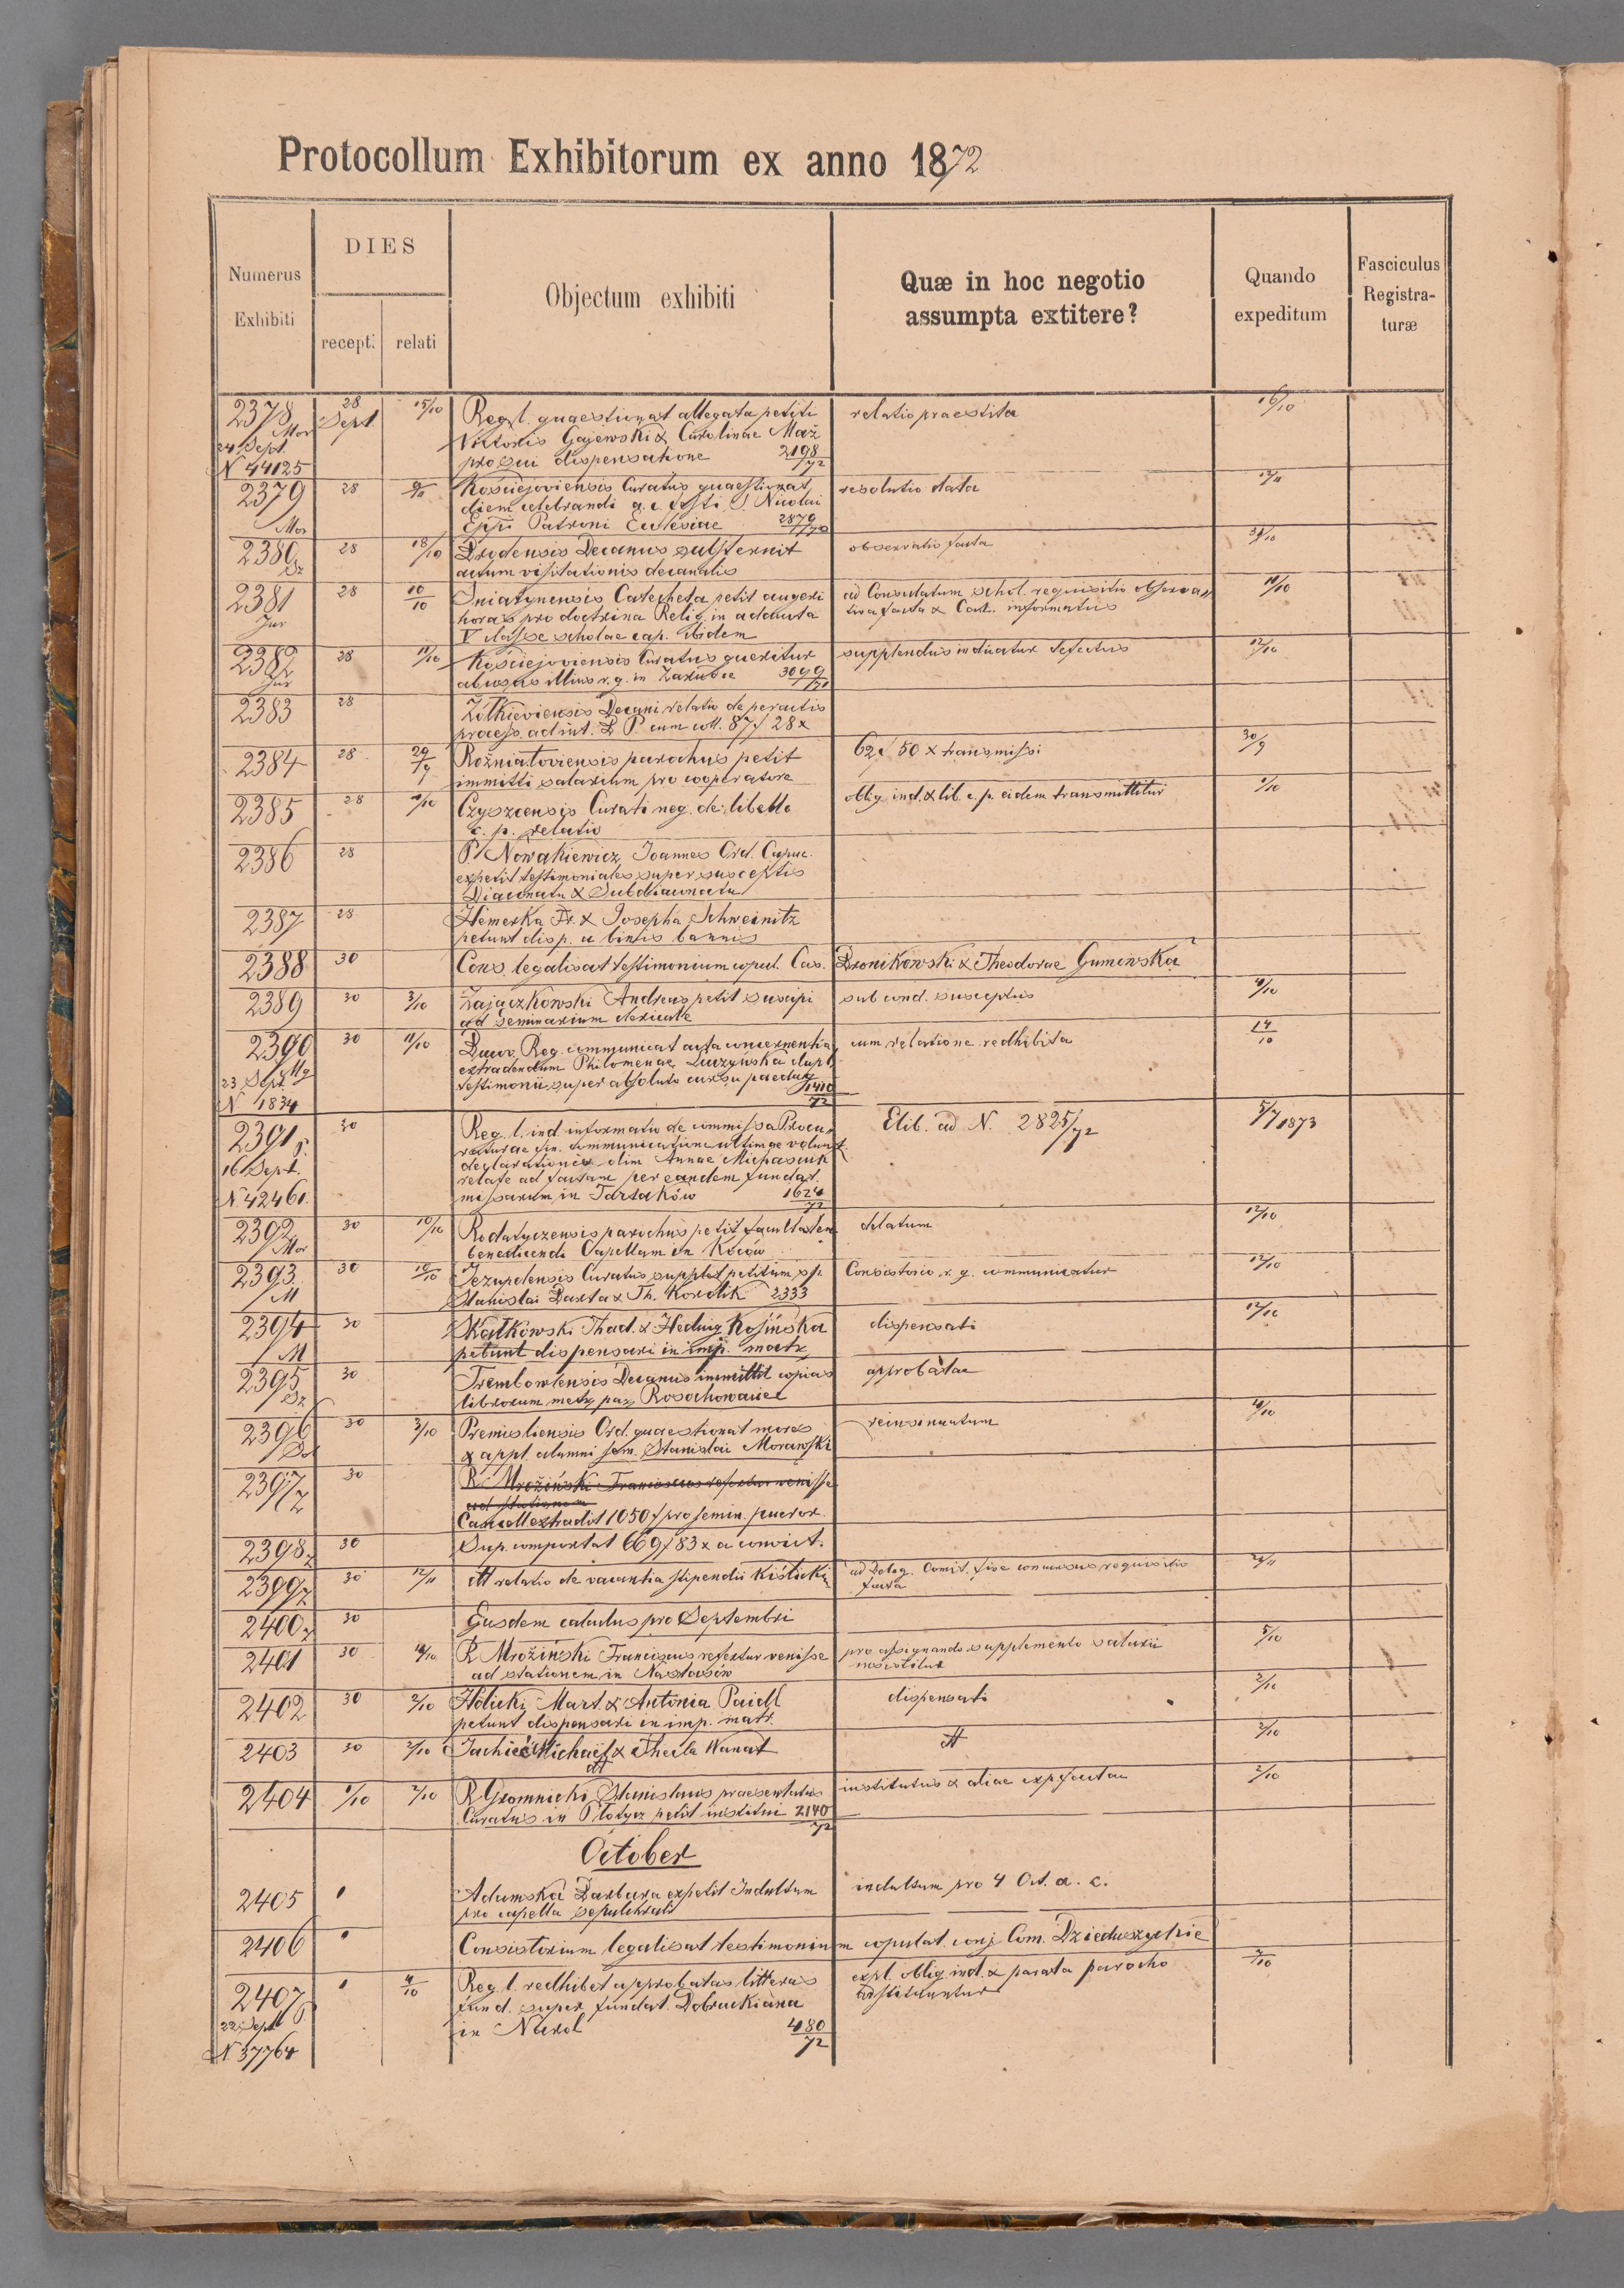 Protocollum Exhibitorum ex anno 1872
Numerus Exhibiti
DIES
recept. relati
Objectum exhibiti
Quæ in hoc negotio assumpta extitere?
Quando expeditum
Fasciculus Registraturæ
2378 28 15/10 Reg. l. quaestionat allegata petiti relatio praestita 16/10
Mor Sept
24 Sept. Victoris Gajewski & Carolinae Maž
N 44125 pro sui dispensatione 2198/72
2379 28 9/11 Kościejoviensis Curatus quaestionat resolutio data 12/11
diem celebrandi a. c. festi S. Nicolai
Mor Eppi Patroni Ecclesiae 2879/70
2380 28 18/10 Brodensis Decanus substernit observatio facta 31/10
Dz actum visitationis decanalis
2381 28 10/10 Sniatynensis Catecheta petit augeri ad Consulatum schol. requisitio observa„ 11/10
horas pro doctrina Relig. in adaucta tiva facta & Cat. informatus
Jur V classe scholae cap. ibidem
2382 28 11/10 Kościejoviensis Curatus queritur supplendus indicatur defectus 12/10
Jur abusus illius r. g. in Zarubie 3099/71
2383 28 Żółkieviensis Decani relatio de peractis
process. ad int. B. P. cum coll. 87 f 28 x
2384 28 29/9 Rožniatoviensis parochus petit 62 f 50 x transmissi 30/9
immitti salarium pro cooperatore
2385 28 1/10 Czyszcensis Curati neg. de libello oblig. ind. & lib. c. p. eidem transmittitur 1/10
c. p. relatio
2386 28 P. Nowakiewicz Joannes Ord. Capuc.
expetit testimoniales super susceptis
Diaconatu & Subdiaconatu
2387 28 Hemerka Fr. & Josepha Schweinitz
petunt disp. a binis bannis
2388 30 Cons. legalisat testimonium copul. Cas. Bronikowski & Theodorae Gumowska
2389 30 3/10 Zajączkowski Andreas petit suscipi sub cond. susceptus 4/10
ad seminarium clericale
2390 30 11/10 Bucov. Reg. communicat acta concernentia cum relatione redhibita 14/10
Mg extradendum Philomenae Łuczyńska dupl.
23 Sept. testimonii super absoluto cursu paedag.
N 1834 1410/72
2391 30 Reg. l. ind. informatio de commissa Procu„ Elib. ad N. 2825/72 5/7 1873
raturae fin. communicatione ultimae volunt.
16 Sept. declarationis olim Annae
relate ad factam per eandem fundat.
N 42461. missarum in Tartaków 1624/72
2392 30 10/10 Rodatyczensis parochus petit facultatem delatum 12/10
Mor benedicendi Capellam in Koców
2393 30 10/10 Jezupolensis Curatus supplet petitum sp. Consistorio r. g. communicatur 12/10
M Stanislai Barta & Th. Korolik 2333
2394 30 Skałkowski Thad. & Hedwig Kosińska dispensati 12/10
M petunt dispensari in imp. matr.
2395 30 Trembowlensis Decanus immittit copias approbatae
Dz librorum metr. par. Rosochowaciec
2396 30 3/10 Premisliensis Ord. quaestionat mores reinsinuatum 4/10
& appl. alumni sem. Stanislai Morawski
2397 30 R. Mroziński Franciscus refertur venisse
ad stationem
Cancell. extradit 1050 f pro semin. pueror.
2398 30 Sup. comportat 669 f 83 x a convict.
2399 30 12/11 dtt relatio de vacantia stipendii Kiślicki ad Deleg. Comit. sive concursus requisitio 24/11
facta
2400 30 Ejusdem calculus pro Septembri
2401 30 4/10 R Mroziński Franciscus refertur venisse pro assignando supplemento salarii 5/10
ad stationem in Nastasów insistitur
2402 30 2/10 Holicki Mart. & Antonia Paidl dispensati 2/10
petunt dispensari in imp. matr.
2403 30 2/10 Jachieć Michael & Thecla Wanat dtt 2/10
dtt
2404 1/10 2/10 R Gromnicki Stanislaus praesentatus institutus & aliae exp. factae 2/10
Curatus in Płotycz petit institui 2140/72
October
2405 1 Adamska Barbara expetit Indultum indultum pro 4 Oct. a. c.
pro capella sepulchrali
2406 1 Consistorium legalisat testimonium copulat. conj. Com. Dzieduszyckie
2407 1 4/10 Reg. l. redhibet approbatas litteras expl. oblig. ind. & parata parocho 7/10
22 Sept fund. super fundat. Dobruckiana restituuntur
N 37764 in Narol 480/72